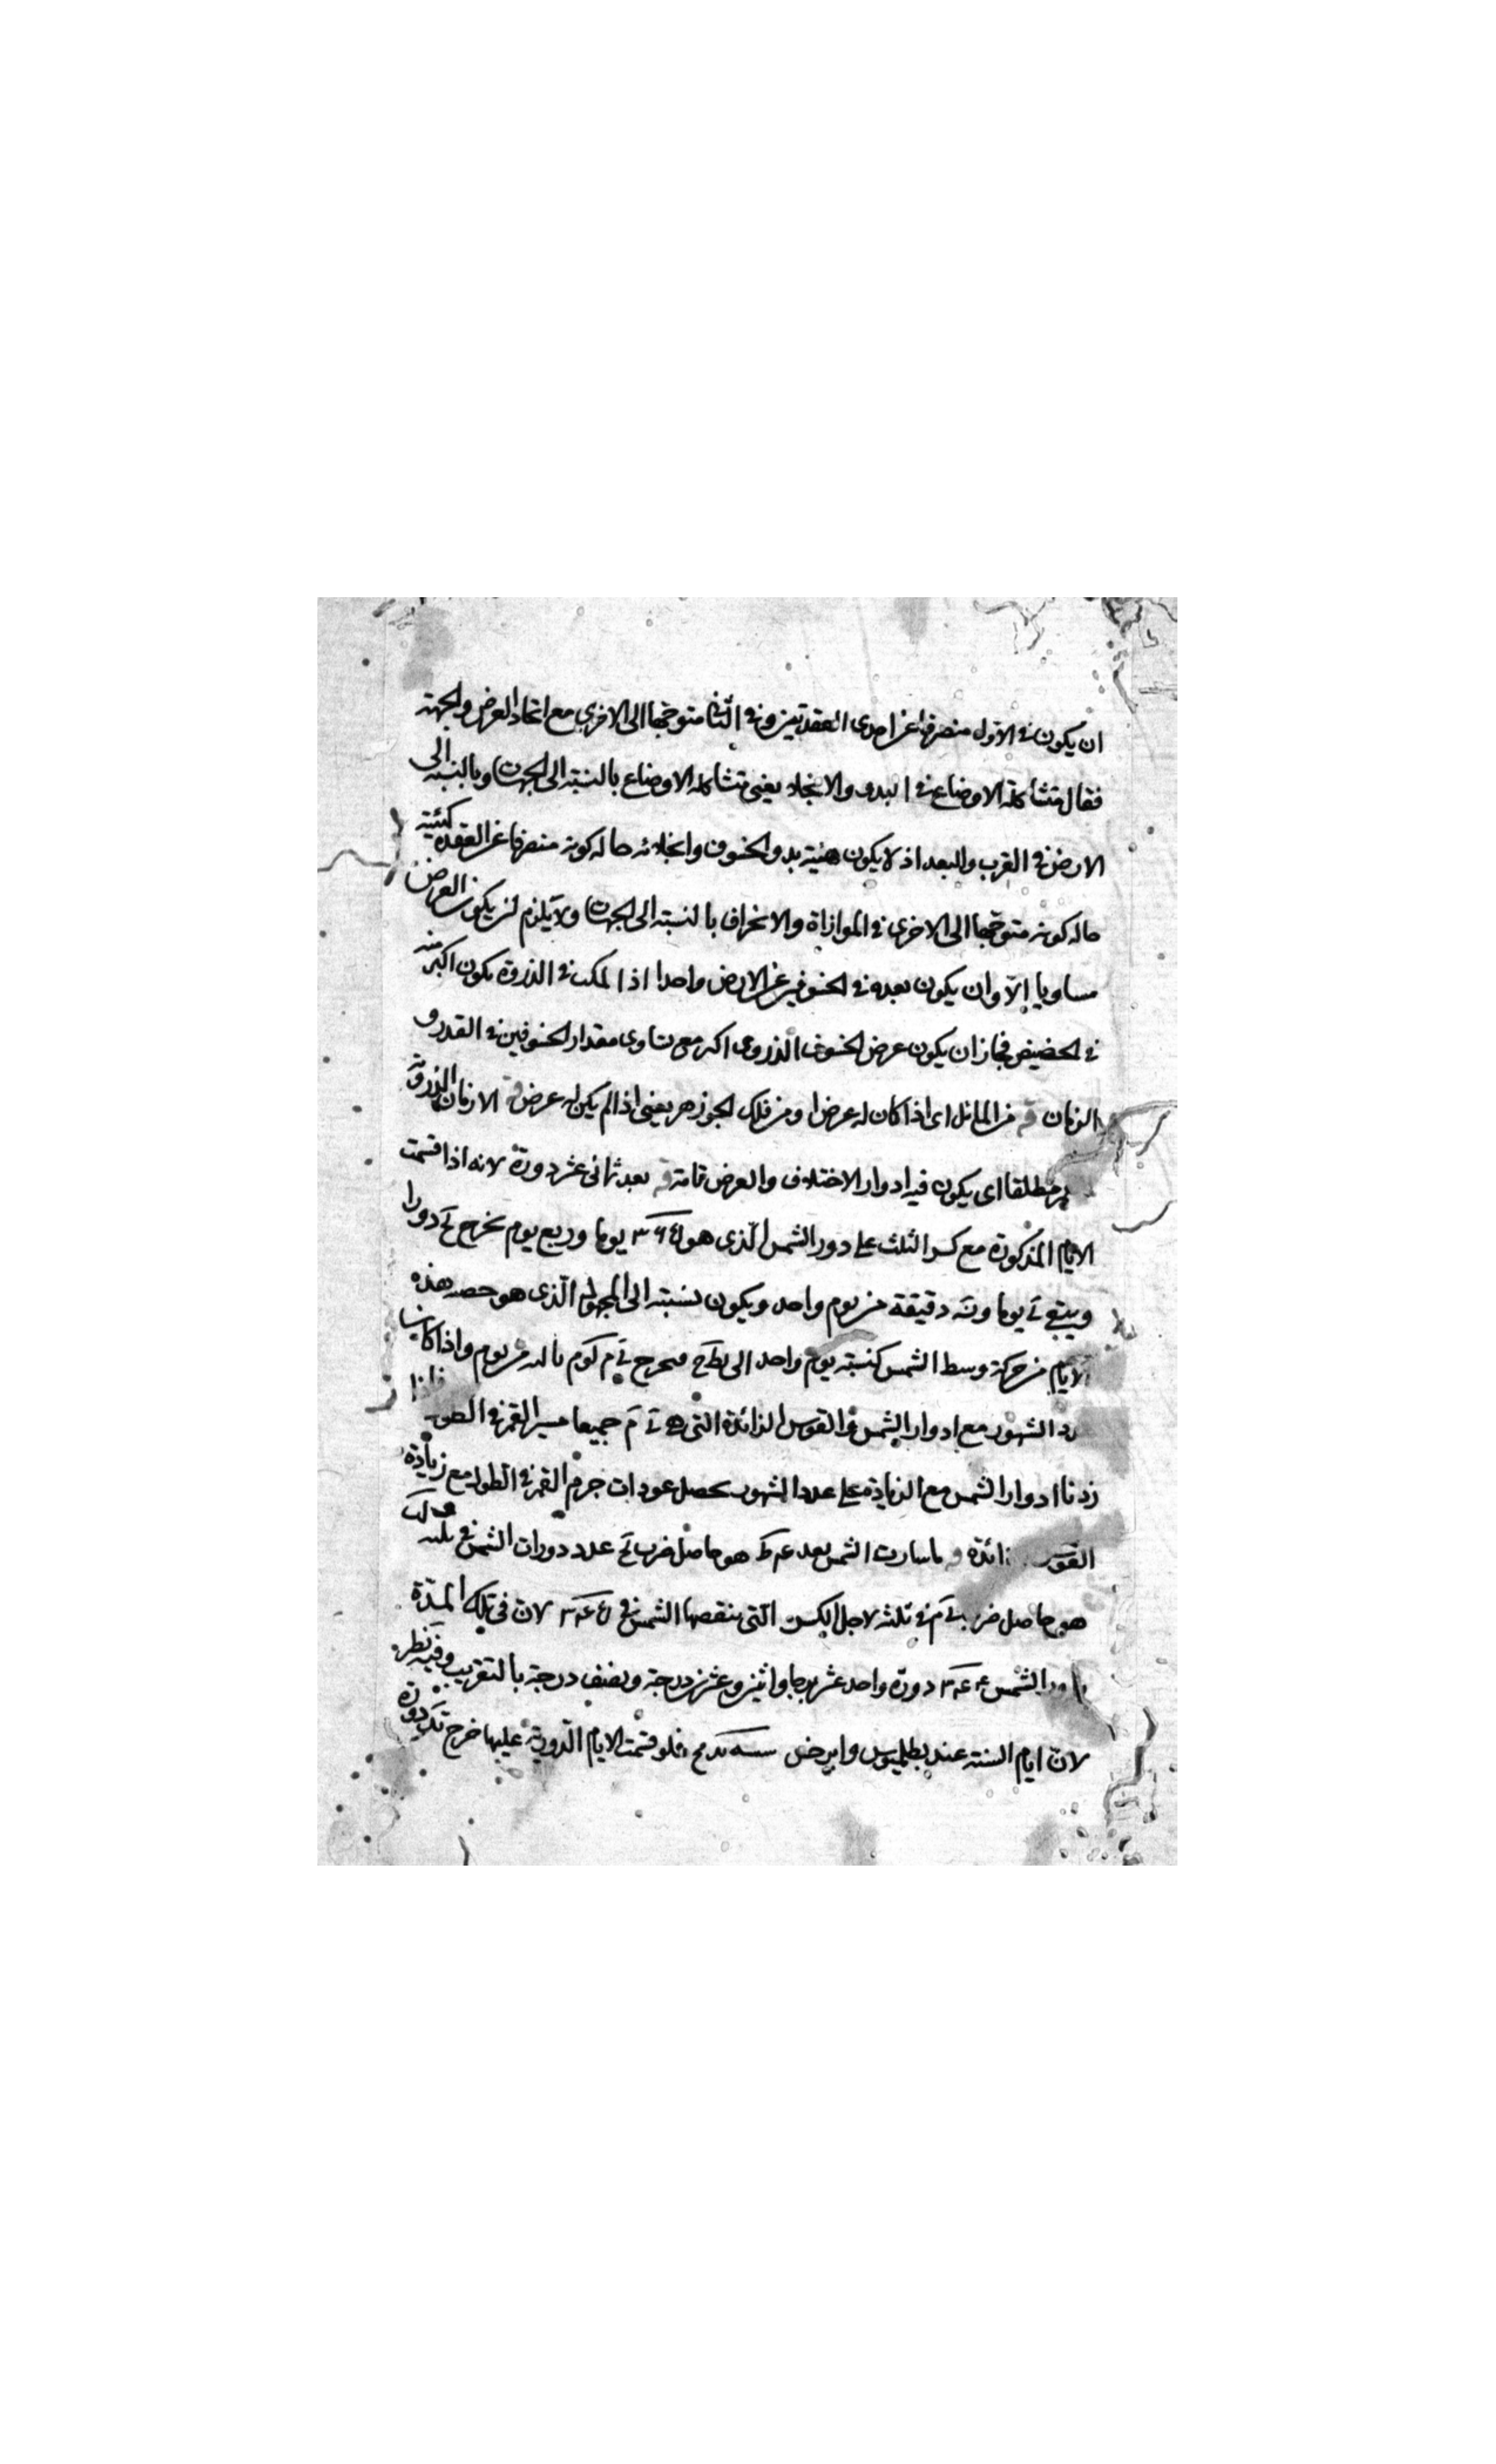 ان يكون فى الاول منصرفا عن احدى العقدتين وفى الثانى متوجها الى الاخرى مع اتحاد العرض والجهة
فقال متشاكلة الاوضاع فى البدو والانجلاء يعنى متشاكلة الاوضاع بالنسبة الى الجهات وبالنسبة الى
الارض فى القرب والبعد اذ لا يكون هيئة بدو الخسوف وانجلائه حاله كونه منصرفا عن العقدة كهيئته
حاله كونه متوجها الى الاخرى فى الموازاة والانحراف بالنسبة الى الجهات ولا يلزم ان يكون العرض
مساويا الا وان يكون بعده فى الخسوفين عن الارض واحدا اذ المكث فى الذروة يكون اكثر منه
فى الحضيض فجاز ان يكون عرض الخسوف الذروى اكثر مع تساوى مقدار الخسوفين فى القدر و
الزمان قه من المائل اى اذا كان له عرض او من فلك الجوزهر يعنى اذا لم يكن له عرض قه الازمان الدورية
مطلقا اى يكون فيه ادوار الاختلاف والعرض تامة قه بعد ثمانى عشر دورة لانه اذا قسمت
الايام المذكورة مع كسر الثلث على دور الشمس الذى هو ٣٦٥ يوما وربع يوم يخرج يح دورا
ويبقى ى يوما ون‍ه دقيقة من يوم واحد ويكون نسبته الى المجهول الذى هو حصه هذه
الايام من حركة وسط الشمس كنسبة يوم واحد الى نط ح فيخرج ى م من يوم واذا كان
عدد الشهور مع ادوار الشمس والقوس الزائدة التى هى ى م جميعا مسير القمر فى الطول فاذا
زدنا ادوار الشمس مع الزيادة على عدد الشهور يحصل عودات جرم القمر فى الطول مع زيادة
القوس الزائدة قه ما سارت الشمس بعد هو حاصل ضرب يح عدد دورات الشمس فى ثلثة
هو حاصل ضرب ى م فى ثلثه لاجل الكسر التى ينقصها الشمس فى ٣٤٥ لان فى تلك المدة
الشمس ٣٤٤ دورة واحد عشر برجا واثنين وعشرين درجة ونصف درجة بالتقريب وفيه نظر
لان ايام السنة عند بطلميوس وابرخس سسه يد مح فلو قسمت الايام الدورية عليها خرج دورة